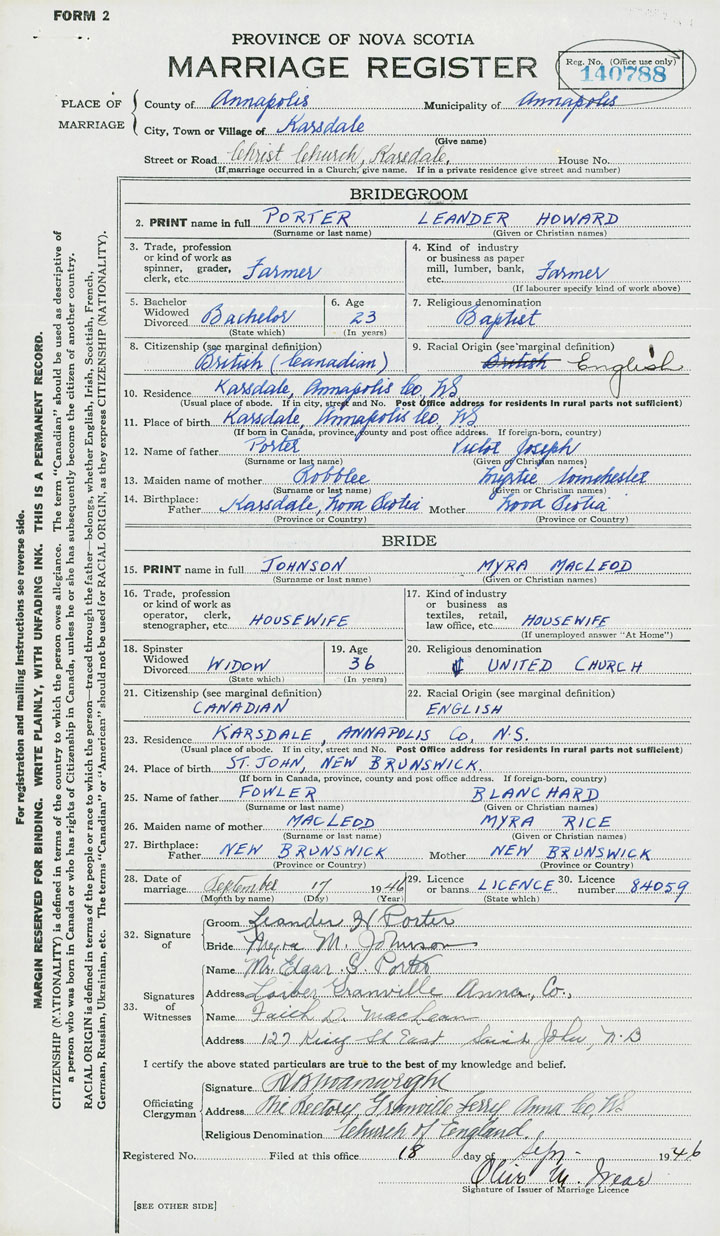 FORM 2
PROVINCE OF NOVA SCOTIA
MARRIAGE REGISTER
Reg. No. (Office use only)
140788
PLACE OF MARRIAGE
County of Annapolis Municipality of Annapolis
City, Town or Village of Karsdale
(Give name)
Street or Road Christ Church, Karsdale, House No.
(If marriage occurred in a Church, give name. If in a private residence give street and number)
BRIDEGROOM
2. PRINT name in full PORTER LEANDER HOWARD
(Surname or last name) (Given or Christian names)
3. Trade, profession or kind of work as spinner, grader, clerk, etc. Farmer
4. Kind of industry or business as paper mill, lumber, bank, etc. Farmer
(If labourer specify kind of work above)
5. Bachelor Widowed Divorced Bachelor
(State which)
6. Age 23
(In years)
7. Religious denomination
Baptist
8. Citizenship (see marginal definition)
British (Canadian)
9. Racial Origin (see marginal definition)
British English
10. Residence Karsdale, Annapolis Co, NS
(Usual place of abode. If in city, street and No. Post Office address for residents in rural parts not sufficient)
11. Place of birth Karsdale, Annapolis Co, NS
(If born in Canada, province, county and post office address. If foreign-born, country)
12. Name of father Porter Victor Joseph
(Surname or last name) (Given or Christian names)
13. Maiden name of mother Robblee Myrtie
(Surname or last name) (Given or Christian names)
14. Birthplace: Father Karsdale, Nova Scotia Mother Nova Scotia
(Province or Country) (Province or Country)
BRIDE
15. PRINT name in full JOHNSON MYRA MACLEOD
(Surname or last name) (Given or Christian names)
16. Trade, profession or kind of work as operator, clerk, stenographer, etc. HOUSEWIFE
17. Kind of industry or business as textiles, retail, law office, etc. HOUSEWIFE
(If unemployed answer "At Home")
18. Spinster Widowed Divorced WIDOW
(State which)
19. Age 36
(In years)
20. Religious denomination
UNITED CHURCH
21. Citizenship (see marginal definition)
CANADIAN
22. Racial Origin (see marginal definition)
ENGLISH
23. Residence KARSDALE, ANNAPOLIS CO, N.S.
(Usual place of abode. If in city, street and No. Post Office address for residents in rural parts not sufficient)
24. Place of birth ST. JOHN, NEW BRUNSWICK.
(If born in Canada, province, county and post office address. If foreign-born, country)
25. Name of father FOWLER BLANCHARD
(Surname or last name) (Given or Christian names)
26. Maiden name of mother MACLEOD MYRA RICE
(Surname or last name) (Given or Christian names)
27. Birthplace: Father NEW BRUNSWICK Mother NEW BRUNSWICK
(Province or Country) (Province or Country)
28. Date of marriage September 17 1946
(Month by name) (Day) (Year)
29. Licence or banns LICENCE
(State which)
30. Licence number 84059
32. Signature of
Groom Leander H Porter
Bride Myra M. Johnson
33. Signatures of Witnesses
Name Mr. Edgar G. Porter
Address Granville Anna, Co,
Name Faith D. MacLean
Address 127 King St East Saint John, N-B
I certify the above stated particulars are true to the best of my knowledge and belief.
Officiating Clergyman
Signature
Address The Rectory, Granville Ferry Anna Co, NS
Religious Denomination Church of England.
Registered No. Filed at this office 18 day of Sep- 1946
Signature of Issuer of Marriage Licence
[SEE OTHER SIDE]
For registration and mailing instructions see reverse side.
MARGIN RESERVED FOR BINDING. WRITE PLAINLY, WITH UNFADING INK. THIS IS A PERMANENT RECORD.
CITIZENSHIP (NATIONALITY) is defined in terms of the country to which the person owes allegiance. The term "Canadian" should be used as descriptive of
a person who was born in Canada or who has rights of Citizenship in Canada, unless he or she has subsequently become the citizen of another country.
RACIAL ORIGIN is defined in terms of the people or race to which the person—traced through the father—belongs, whether English, Irish, Scottish, French,
German, Russian, Ukrainian, etc. The terms "Canadian" or "American" should not be used for RACIAL ORIGIN, as they express CITIZENSHIP (NATIONALITY).